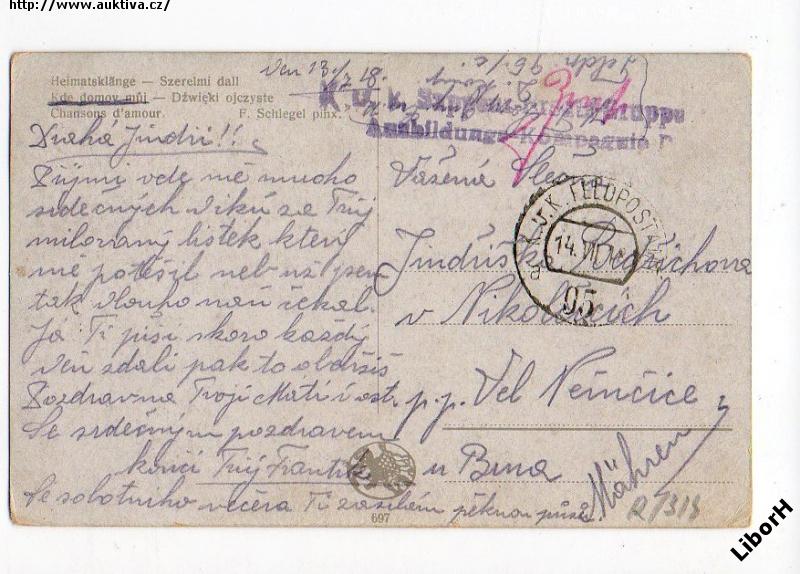 http://www.auktiva.cz/
Heimatsklänge — Szerelmi dall
Kde domov můj — Dźwięki ojczyste
Chansons d'amour. F. Schlegel pinx.
Den 13./7 18.
K. u. k.
Ausbildungs-Kompagnie
Drahá Jindři!!
Přijmi vele mě mnoho
srdečných díků za Tvůj
milovaný lístek který
mě potěšil neb už jsem
tak dlouho naň čekal.
Ja Ti píši skoro každý
den zdali pak to obdržíš
Pozdravma Tvoji Matí i ost.
Se srdečným pozdravem
končí Tvůj Frantík
Se sobotního večera Ti zasílám pěknou
Vážená
Jindůška
v Nikolčicích
p. p. Vel Němčice
u Brna
Mähren
K.u.K. FELDPOST
14. VII. 18
95
697
R 1318
LiborH